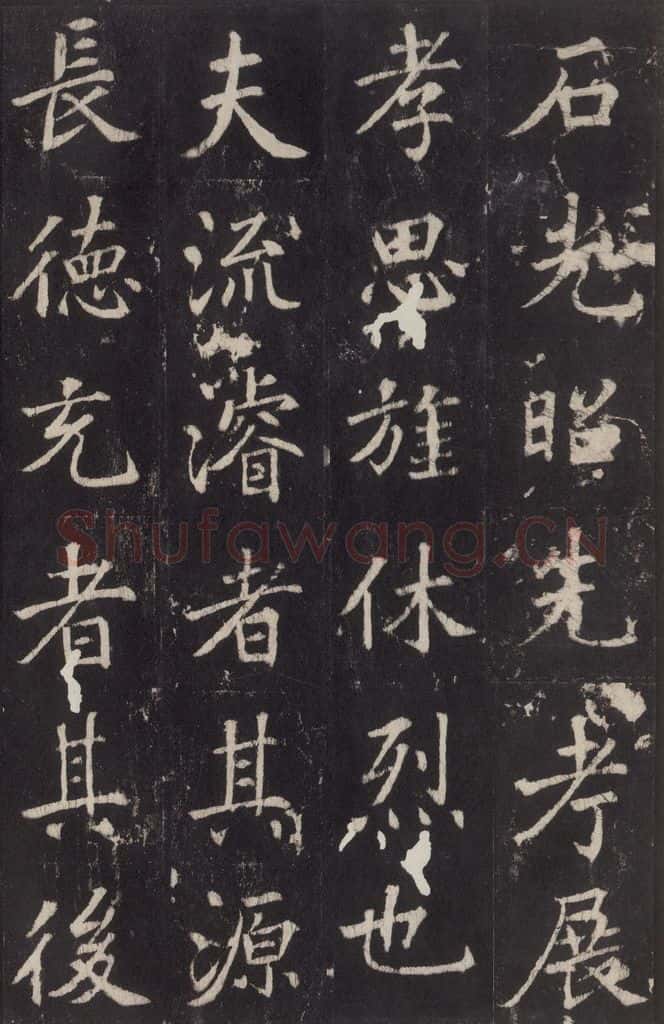 石光昭先考展
孝思旌休烈也
夫流濬者其源
長徳充者其後
Shufawang.CN